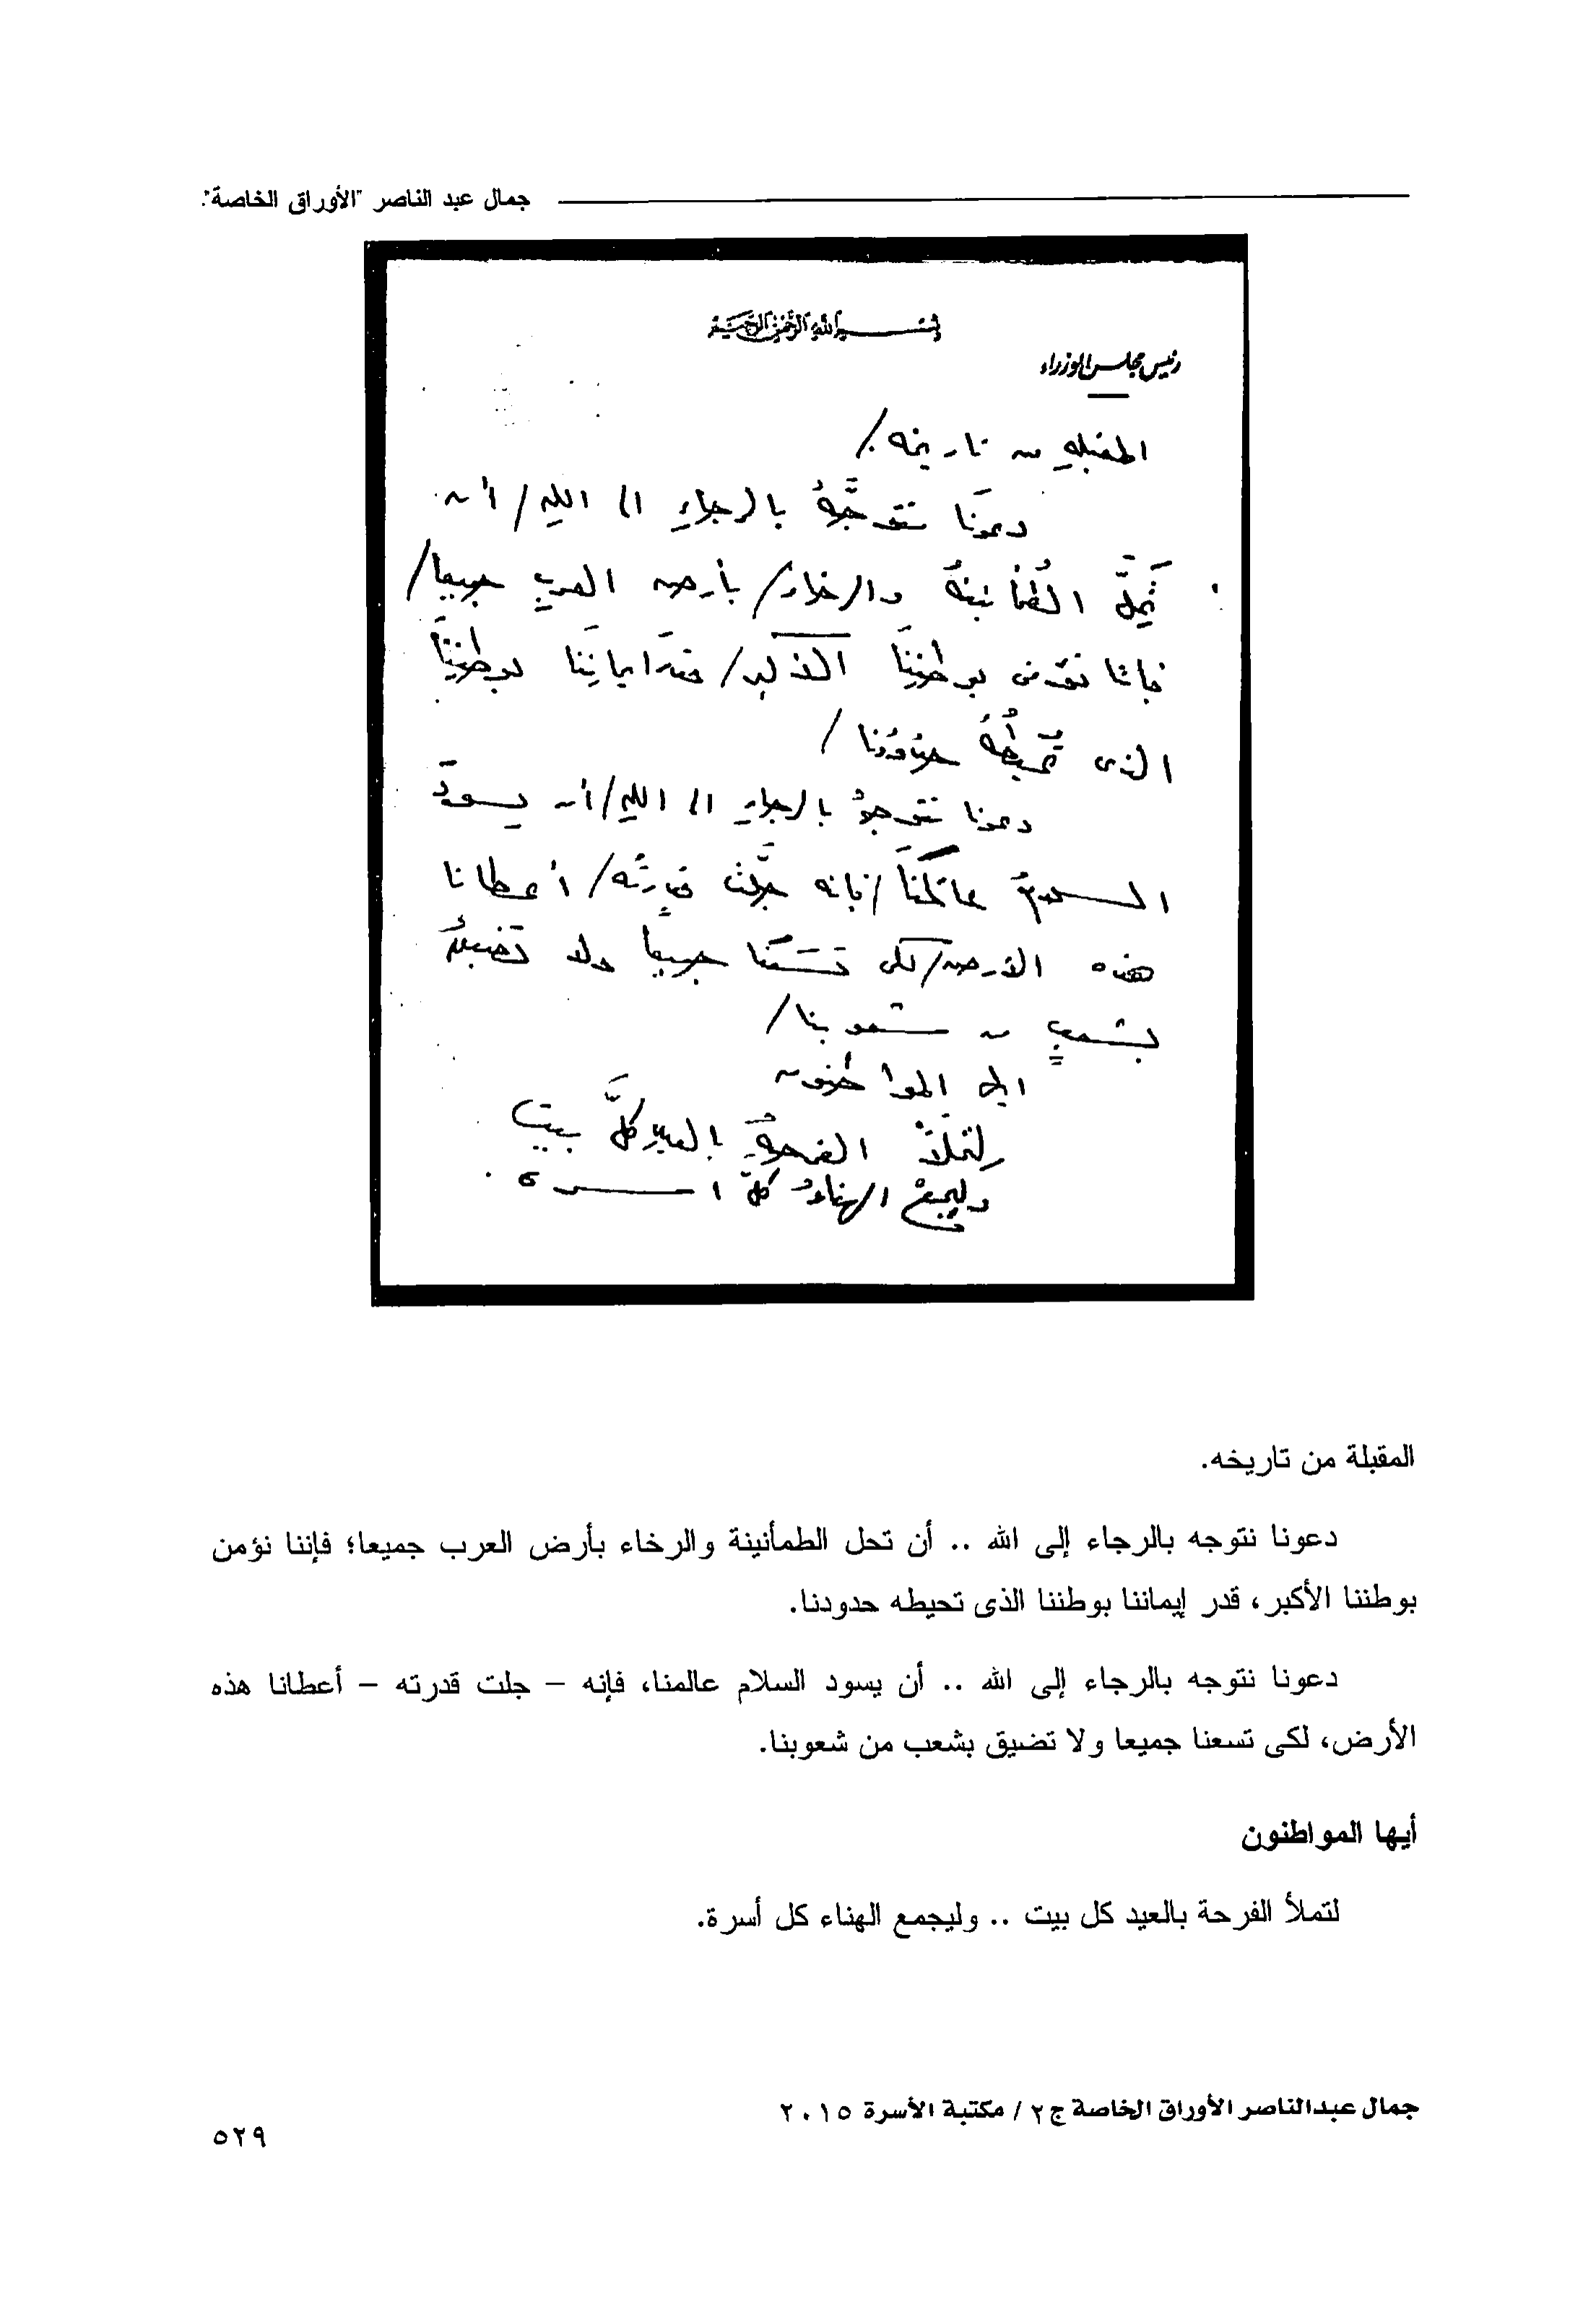 جمال عبد الناصر "الأوراق الخاصة".
بسم الله الرحمن الرحيم
رئيس مجلس الوزراء
المقبله من تاريخه /
دعونَا نتوجَّهُ بالرجاءِ الى اللهِ / أن
تَحِلَّ الطُمأنينهُ والرخاء / بأرض العربِ جميعا /
فاننا نؤمن بوطنِنَا الاكبر / قدرَ ايمانِنَا بوطنِنَا
الذى تُحيطُهُ حدودُنا /
دعونا نتوجهُ بالرجاءِ الى اللهِ / أن يسودَ
السلامُ عالمَنَا / فانه جلَّت قدرتُه / أعطانا
هذه الارض / لكى تسَعَنا جميعا ولا تضيقُ
بشعبٍ من شعوبنا /
ايها المواطنون
لتملأْ الفرحةُ بالعيدِ كلَّ بيت
وليجمعْ الهناءُ كلَّ اسرة .
المقبلة من تاريخه.
دعونا نتوجه بالرجاء إلى الله .. أن تحل الطمأنينة والرخاء بأرض العرب جميعا؛ فإننا نؤمن
بوطننا الأكبر، قدر إيماننا بوطننا الذى تحيطه حدودنا.
دعونا نتوجه بالرجاء إلى الله .. أن يسود السلام عالمنا، فإنه – جلت قدرته – أعطانا هذه
الأرض، لكى تسعنا جميعا ولا تضيق بشعب من شعوبنا.
أيها المواطنون
لتملأ الفرحة بالعيد كل بيت .. وليجمع الهناء كل أسرة.
جمال عبدالناصر الأوراق الخاصة ج٢ / مكتبة الأسرة ٢٠١٥
٥٢٩